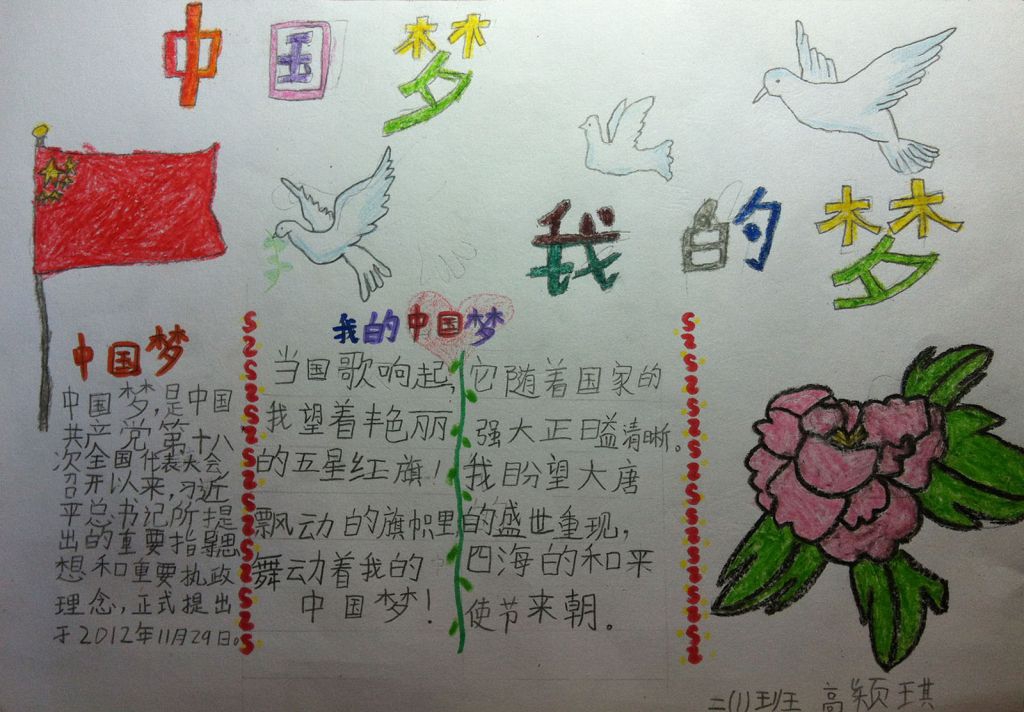 中国梦
我的梦
中国梦
中国梦,是中国
共产党第十八
次全国代表大会
召开以来,习近
平总书记所提
出的重要指导思
想和重要执政
理念,正式提出
于2012年11月29日。
我的中国梦
当国歌响起,
我望着丰色丽
的五星红旗!
飘动的旗帜里
舞动着我的
中国梦!
它随着国家的
强大正日益清晰。
我盼望大唐
的盛世重现,
四海的和平
使节来朝。
二(1)班 高颖琪